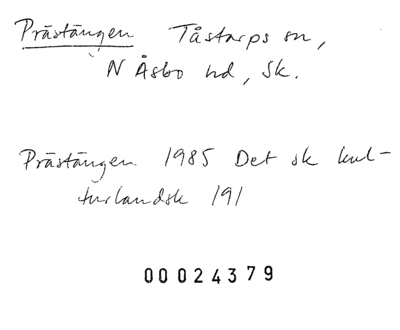 Prästängen Tåstarps sn,
N Åsbo hd, Sk.
Prästängen 1985 Det sk kul-
turlandsk 191
00024379